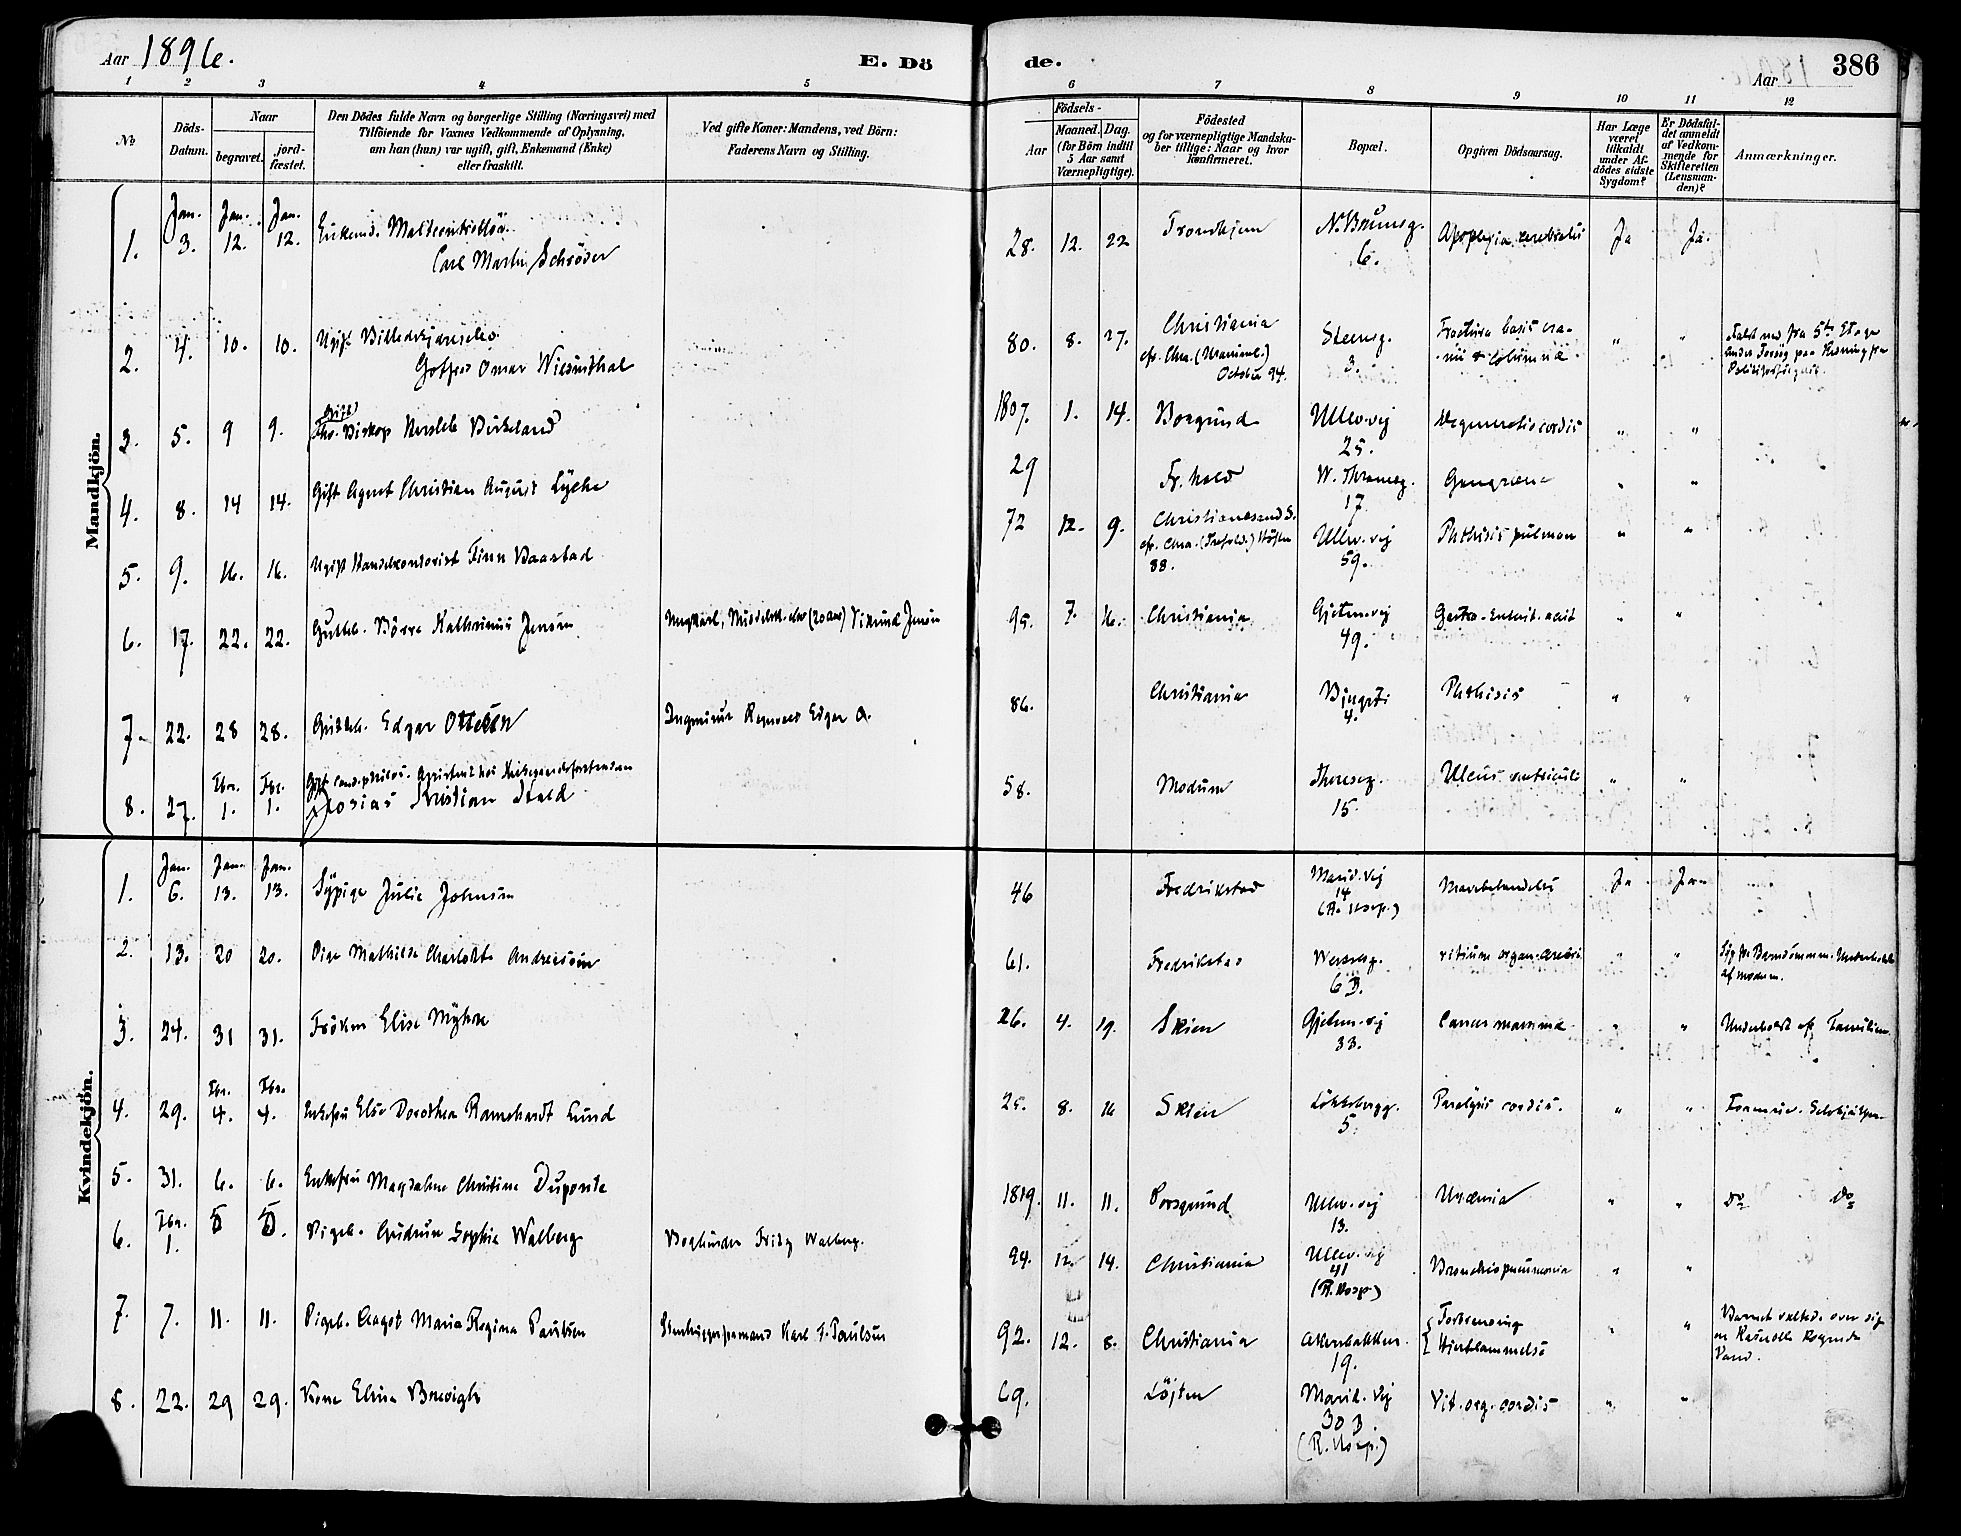 Aar 1896.
E. Dö
de.
Aar
386
1 2 3 4 5 6 7 8 9 10 11 12
No
Döds-Datum.
Naar
begravet.
jord-fæstet.
Den Dödes fulde Navn og borgerlige Stilling (Næringsvei) med
Tilföiende for Voxnes Vedkommende af Oplysning,
om han (hun) var ugift, gift, Enkemand (Enke)
eller fraskilt.
Ved gifte Koner: Mandens, ved Börn:
Faderens Navn og Stilling.
Födsels-
Aar
Maaned.
Dag.
(for Börn indtil
5 Aar samt
Værnepligtige).
Födested
og for værnepligtige Mandska-
ber tillige: Naar og hvor
konfirmeret.
Bopæl.
Opgiven Dödsaarsag.
Har Læge
været
tilkaldt
under Af-
dödes sidste
Sygdom?
Er Dödsfal-
det anmeldt
af Vedkom-
mende for
Skifteretten
(Lensman-
den)?
Anmærkninger.
Mandkjön.
1. Jan. 3. Jan. 12. Jan. 12. Enkemd.
Carl Martin Schröder
28. 12. 22 Trondhjem N. Brunsg. 6. Apoplexia cerebralis Ja Ja.
2. 4. 10. 10. Ugift
Gotfred Omar Wiesenthal
80. 8. 27. Christiania
cfr. Chra. (Uranienb.)
October 94.
Steensg. 3. Fractura basis cra-
nii & columnæ " "
Faldt ned fra 5te Etage
under Forsög paa Römning fra
3. 5. 9 9. Gift Biskop Hersleb Birkeland
1807. 1. 14. Borgund Ullev.vej 25. Degeneratio cordis " "
4. 8. 14 14. Gift Agent Christian August Lyche
29 Fr.hald W. Thranesg. 17. Gangræna " "
5. 9. 16. 16. Ugift Handelskontorist Finn Baastad
72 12. 9. Christianssand S.
cfr. Chra. (Trefold.) Hösten
88.
Ullev.vej 59. Phthisis pulmon " "
6. 17. 22. 22. Gutteb. Börre Kathrinus Jensen
95. 7. 16. Christiania Gjetem.vej 49. Gastro-Enterit. acut " "
7. 22. 28 28. Gutteb. Edgar Ottesen
Ingeniör Edgar O.
86. Christiania Bjugsti 4. Phthisis " "
8. 27. Fbr. 1. Fbr. 1. Gift cand. philos. Assistent hos
Josias Kristian Stald
58. Modum Theresesg. 15. Ulcus ventriculi " "
Kvindekjön.
1. Jan. 6. Jan. 13. Jan. 13. Sypige Julie Johnsen
46 Fredrikstad Marid.vej
14
(R. Hosp.) Ja Ja
2. 13. 20 20. Pige Mathilde Charlotte Andreassen
61. Fredrikstad Wesselsg.
6 B. vitium organ. " "
Syg fra Barndommen. Underholdt
af Moderen.
3. 24. 31 31. Fröken Elise Myhre
26. 4. 19. Skien Gjetem.vej
33. Cancer mammæ " " Underholdt af Familien.
4. 29. Fbr. 4. Fbr. 4. Enkefru Else Dorothea Ramshardt Lund
25. 8. 16 Skien Lökkebergg.
5. Paralysis cordis. " " Formue. Selvhjulpen
5. 31. 6. 6. Enkefru Magdalene Christine Duponte
1819. 11. 11. Porsgrund Ullev.vej
13. Uræmia " " do do
6. Fbr. 1. 5 5. Pigeb. Gudrun Sophie Walberg
Bogbinder Fritz Walberg.
94. 12. 14. Christiania Ullev.vej
41
(R. Hosp.) Bronchopneumonia " "
7. 7. 11. 11. Pigeb. Aagot Maria Regina Paulsen
Stenhuggerformand Karl F. Paulsen
92. 12. 8. Christiania Akersbakken.
19. Forbrænding
Hjertelammelse " "
Barnet væltede over sig
en Kasserolle kogende
Vand.
8. 22. 29 29. Kone Elisa Brevigh
69. Löjten Marid.vej
30 B
(R. Hosp.) Vit. org. cordis " "